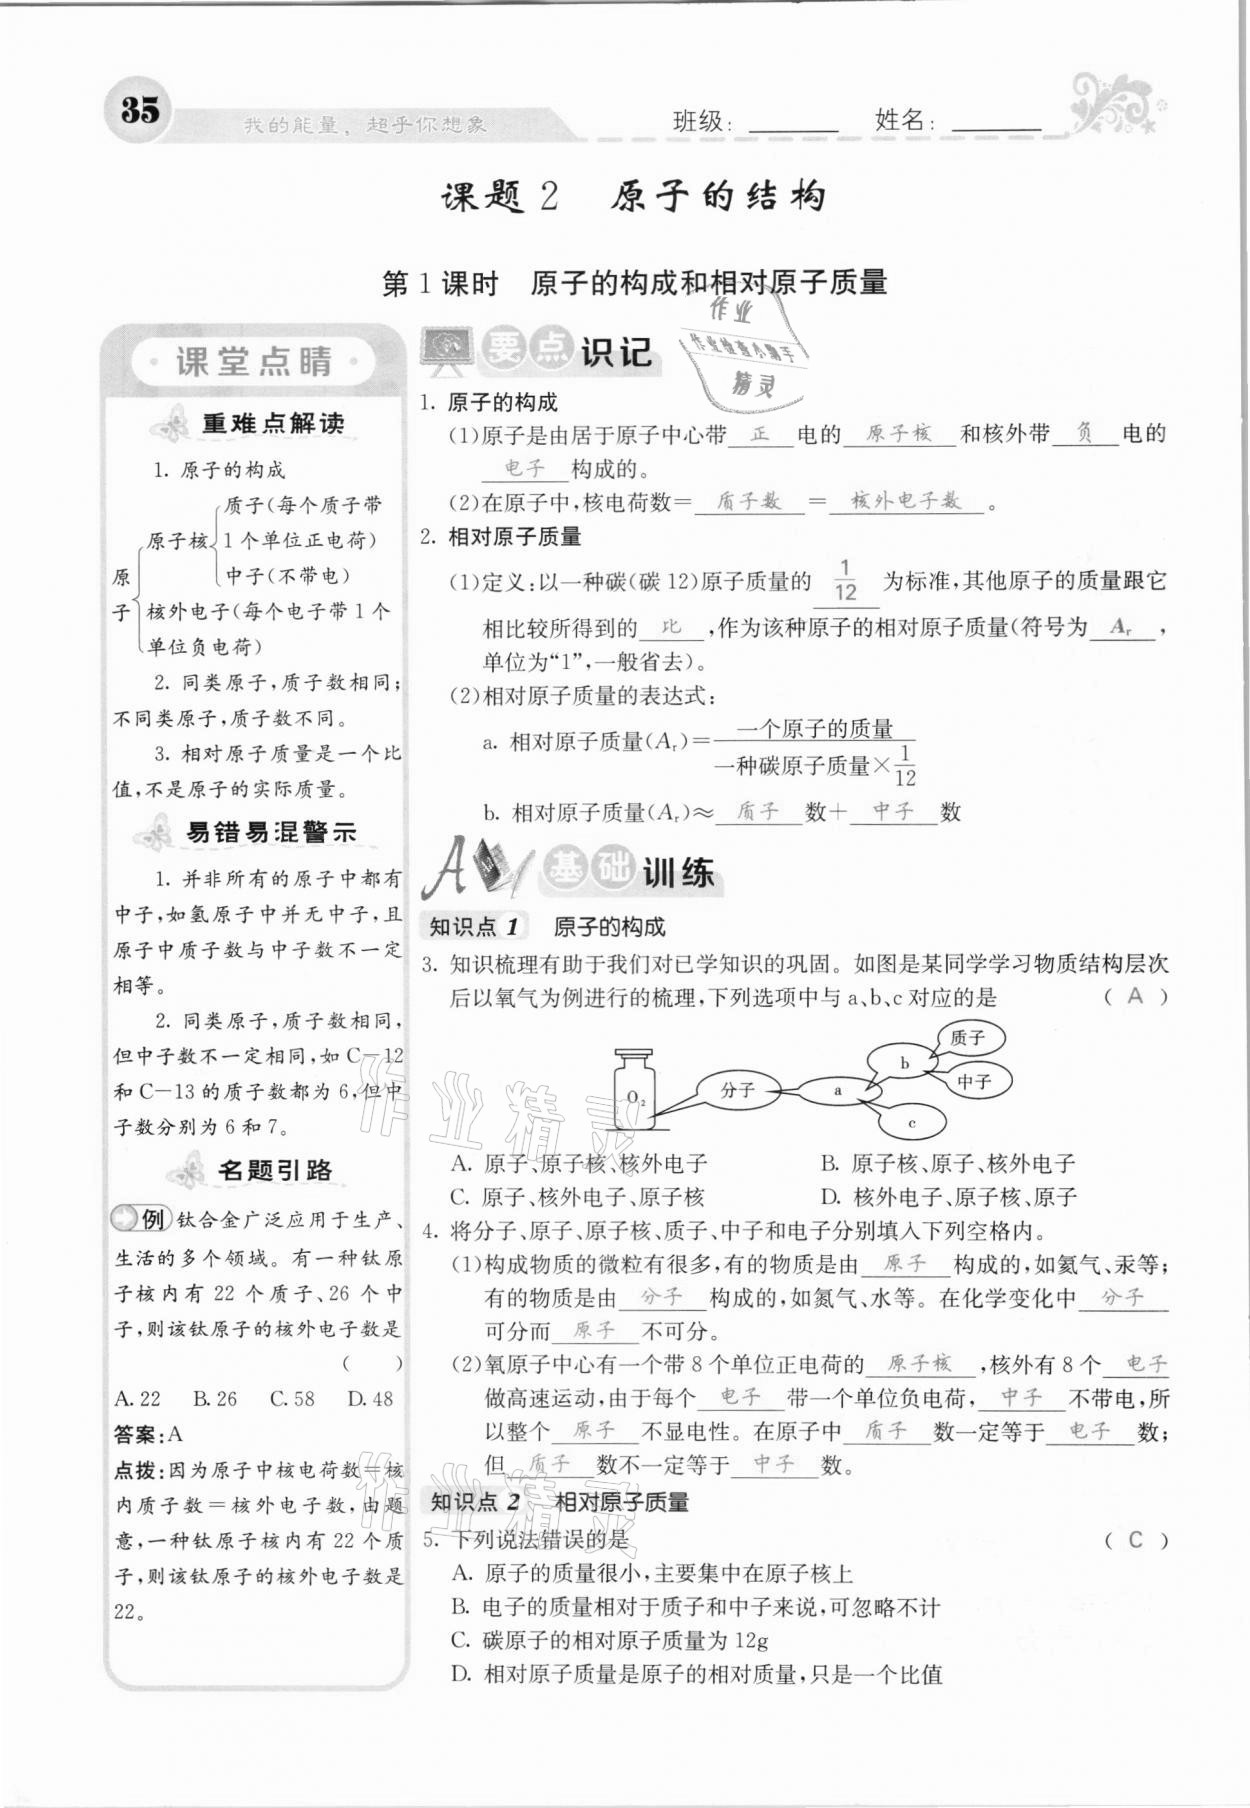 35
我的能量，超乎你想象
班级：
姓名：
课题2 原子的结构
第1课时 原子的构成和相对原子质量
·课堂点睛·
重难点解读
1. 原子的构成
原子
原子核
质子(每个质子带
1个单位正电荷)
中子(不带电)
核外电子(每个电子带1个
单位负电荷)
2. 同类原子,质子数相同;
不同类原子,质子数不同。
3. 相对原子质量是一个比
值,不是原子的实际质量。
易错易混警示
1. 并非所有的原子中都有
中子,如氢原子中并无中子,且
原子中质子数与中子数不一定
相等。
2. 同类原子,质子数相同,
但中子数不一定相同,如C—12
和C—13的质子数都为6,但中
子数分别为6和7。
名题引路
例 钛合金广泛应用于生产、
生活的多个领域。有一种钛原
子核内有22个质子、26个中
子,则该钛原子的核外电子数是
( )
A.22 B.26 C.58 D.48
答案:A
点拨:因为原子中核电荷数=核
内质子数=核外电子数,由题
意,一种钛原子核内有22个质
子,则该钛原子的核外电子数是
22。
要点识记
作业
作业检查小助手
精灵
1. 原子的构成
(1)原子是由居于原子中心带 正 电的 原子核 和核外带 负 电的
电子 构成的。
(2)在原子中,核电荷数= 质子数 = 核外电子数 。
2. 相对原子质量
(1)定义:以一种碳(碳12)原子质量的 1/12 为标准,其他原子的质量跟它
相比较所得到的 比 ,作为该种原子的相对原子质量(符号为 Ar ,
单位为“1”,一般省去)。
(2)相对原子质量的表达式:
a. 相对原子质量(Ar)=一个原子的质量/一种碳原子质量×1/12
b. 相对原子质量(Ar)≈ 质子 数+ 中子 数
A 基础训练
知识点1 原子的构成
3. 知识梳理有助于我们对已学知识的巩固。如图是某同学学习物质结构层次
后以氧气为例进行的梳理,下列选项中与a、b、c对应的是 ( A )
O2
分子
a
b
c
质子
中子
A. 原子、原子核、核外电子 B. 原子核、原子、核外电子
C. 原子、核外电子、原子核 D. 核外电子、原子核、原子
4. 将分子、原子、原子核、质子、中子和电子分别填入下列空格内。
(1)构成物质的微粒有很多,有的物质是由 原子 构成的,如氦气、汞等;
有的物质是由 分子 构成的,如氮气、水等。在化学变化中 分子
可分而 原子 不可分。
(2)氧原子中心有一个带8个单位正电荷的 原子核 ,核外有8个 电子
做高速运动,由于每个 电子 带一个单位负电荷, 中子 不带电,所
以整个 原子 不显电性。在原子中 质子 数一定等于 电子 数;
但 质子 数不一定等于 中子 数。
知识点2 相对原子质量
5. 下列说法错误的是 ( C )
A. 原子的质量很小,主要集中在原子核上
B. 电子的质量相对于质子和中子来说,可忽略不计
C. 碳原子的相对原子质量为12g
D. 相对原子质量是原子的相对质量,只是一个比值
作业精灵
作业精灵